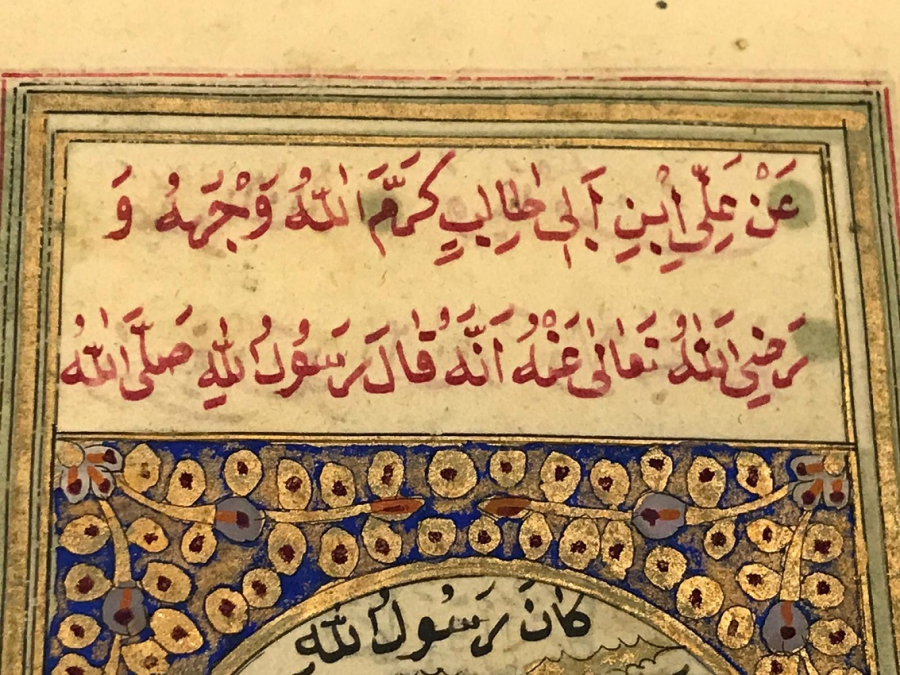 عَنْ عَلِيِّ ابْنِ اَبِى طَالِبٍ كَرَّمَ اللّٰهُ وَجْهَهُ وَ
رَضِىَ اللّٰهُ تَعَالٰى عَنْهُ اَنَّهُ قَالَ رَسُولُ اللّٰهِ صَلَّى اللّٰهُ
كَانَ رَسُولُ اللّٰهِ